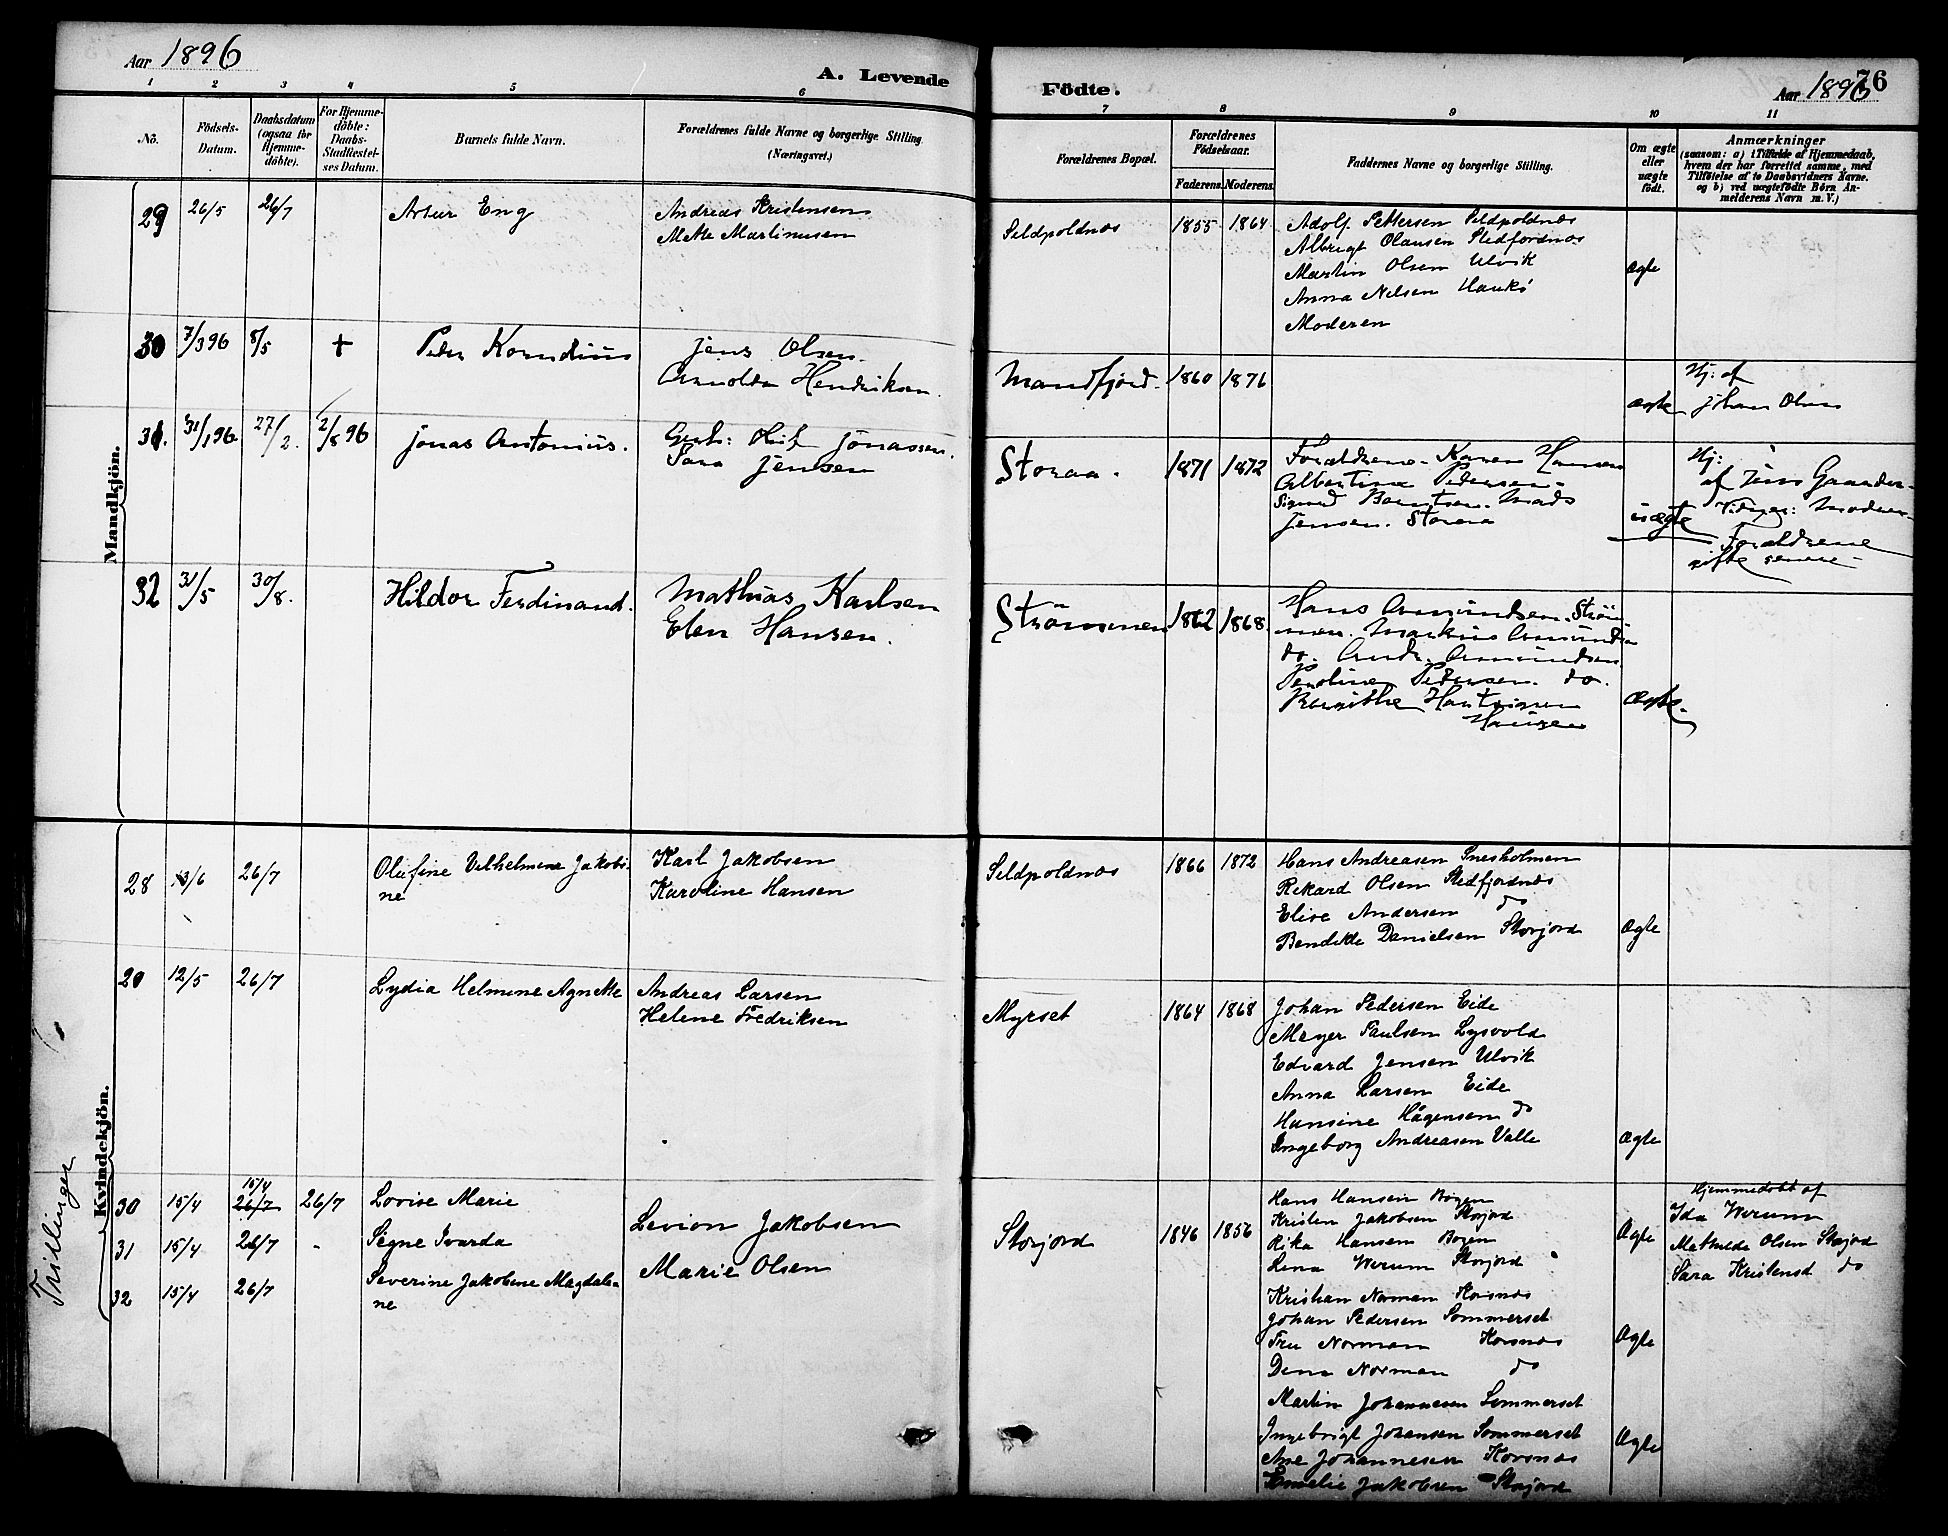 Aar 1896
A. Levende
1 2 3 4 5 6
No.
Födsels-Datum.
Daabsdatum (ogsaa for Hjemme-döbte).
For Hjemme-döbte: Daabs-Stadfæstel-ses Datum.
Barnets fulde Navn.
Forældrenes fulde Navne og borgerlige Stilling (Næringsvei.)
Mandkjön.
29 26/5 26/7 Artur Eng Andreas Kristensen
Mette Martinusen
30 7/3 96 8/5 + Peder Kornelius Jens Olsen
Arnolda Hendriksen.
31. 31/1 96 27/2. 2/8 96 Jonas Antonius. Jonassen.
Sara Jensen
32 31/5 30/8. Hildor Ferdinand. Mathias Karlsen
Elen Hansen.
Kvindekjön.
28 13/6 26/7 Olufine Vilhelmine Jakobi- Karl Jakobsen
ne Karoline Hansen
29 12/5 26/7 Lydia Helmine Agnette Andreas Larsen
Helene Fredriksen
Trillinger
15/4
30 15/4 26/7 26/7 Lovise Marie Levion Jakobsen
31 15/4 26/7 - Signe Ivarda
Marie Olsen
32 15/4 26/7 Severine Jakobine Magdale-
ne
Födte.
76
Aar 1896
7 8 9 10 11
Forældrenes Bopæl.
Forældrenes Födselsaar.
Faderens. Moderens.
Faddernes Navne og borgerlige Stilling.
Om ægte eller uægte födt.
Anmærkninger
(saasom: a) i Tilfælde af Hjemmedaab,
hvem der har forrettet samme, med
Tilföielse af to Daabsvidners Navne.
og b) ved uægtefödte Börn An-
melderens Navn m. V.)
Sildpoldnæs 1855 1864 Adolf Pettersen Sildpoldnæs
Albrigt Olausen Stedfjordnæs
Martin Olsen Ulvik
Anna Nilsen Haukø
Moderen
Ægte
Mandfjord. 1860 1876
ægte
Hj: af
Johan Olsen
Storaa. 1871 1872 Forældrene. Karen Hansen
Albertine Pedersen.
Sigurd Berntsen. Mads
Jensen. Storaa
uægte
Hj:
af Jens
Moderen
Forældrene
gifte senere
Strömmen 1862 1868. Hans Amundsen. Ström-
men. Markus Amundsen
do. Amundsen
Pedersen. do.
Hansen
Ægte.
Sildpoldnæs 1866 1872 Hans Andreasen Snesholmen
Rikard Olsen Stedfjordnæs
Elise Andersen do
Bendikte Danielsen Storjord Ægte
Myrset 1864 1868 Johan Pedersen Eide
Meyer Paulsen Lysvold
Edvard Jensen Ulvik
Anna Larsen Eide
Hansine Hågensen do
Ingeborg Andreasen Valle Ægte
Storjord 1846 1856 Hans Hansen Bogen
Kristen Jakobsen Storjord
Rika Hansen Bogen
Lina Werum Storjord
Ægte
Hjemmedöbt af
Ida Werum
Mathilde Olsen Storjord
Sara Kristensd do
Kristian Norman Korsnæs
Johan Pedersen Sommerset
Fru Norman Korsnæs
Dina Norman do
Ægte
Martin Johannesen Sommerset
Ingebrigt Johansen Sommerset
Ane Johannesen Korsnæs
Emelie Jakobsen Storjord
Ægte